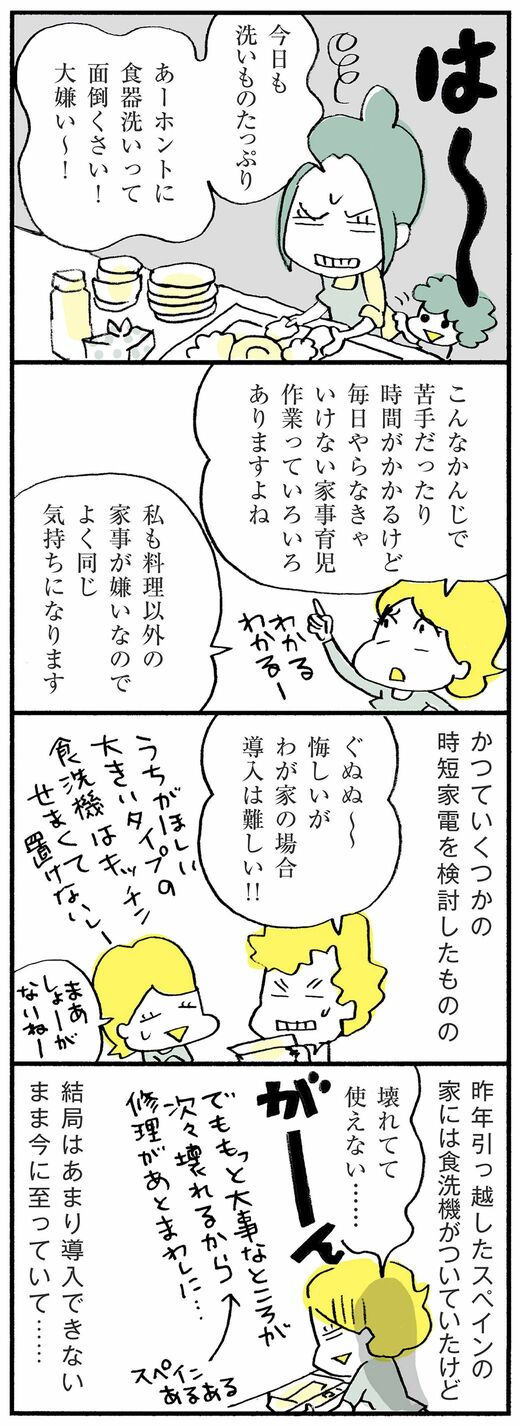 は〜〜
今日も
洗いものたっぷり
あーホントに
食器洗いって
面倒くさい！
大嫌い〜！
こんなかんじで
苦手だったり
時間がかかるけど
毎日やらなきゃ
いけない家事育児
作業っていろいろ
ありますよね
わかる
わかるー
私も料理以外の
家事が嫌いなので
よく同じ
気持ちになります
かつていくつかの
時短家電を検討したものの
ぐぬぬ〜〜
悔しいが
わが家の場合
導入は難しい!!
うちがほしい
大きいタイプの
食洗機はキッチン
せまくて
置けないしー
まあ
しょーが
ないねー
昨年引っ越したスペインの
家には食洗機がついていたけど
壊れてて
使えない……
がーーん
でももっと大事なところが
次々壊れるから
修理があとまわしに…
スペイン
あるある
結局はあまり導入できない
まま今に至っていて……